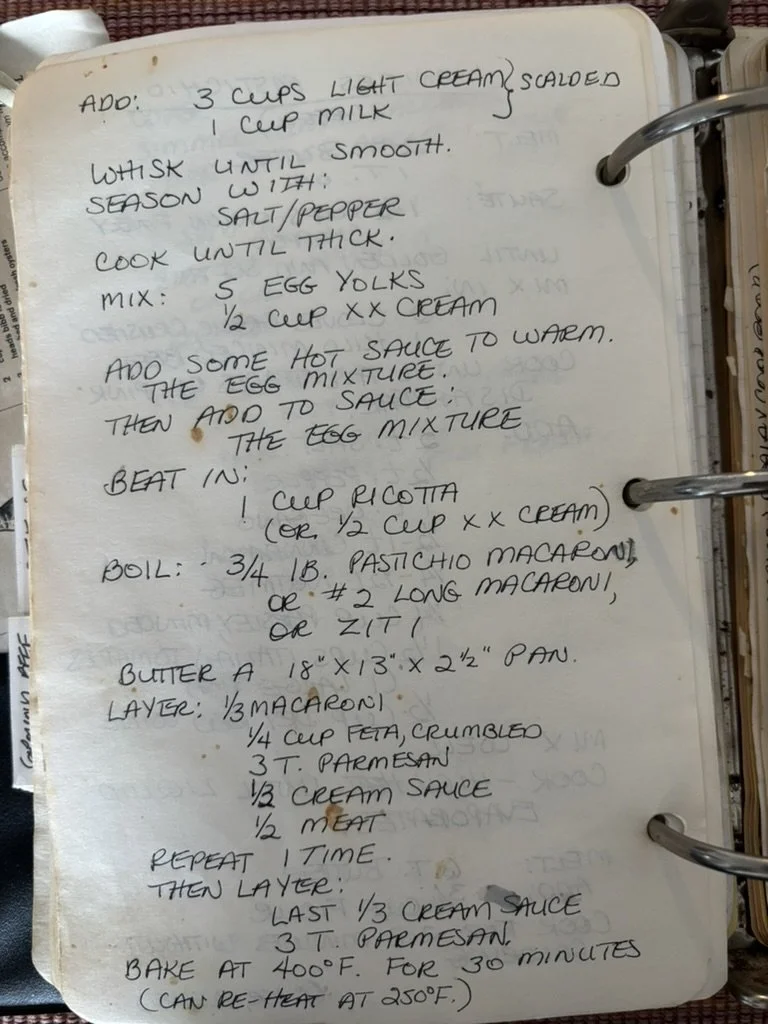 ADD: 3 CUPS LIGHT CREAM } SCALDED
1 CUP MILK
WHISK UNTIL SMOOTH.
SEASON WITH:
SALT/PEPPER
COOK UNTIL THICK.
MIX: 5 EGG YOLKS
1/2 CUP XX CREAM
ADD SOME HOT SAUCE TO WARM.
THE EGG MIXTURE.
THEN ADD TO SAUCE:
THE EGG MIXTURE
BEAT IN:
1 CUP RICOTTA
(OR 1/2 CUP XX CREAM)
BOIL: 3/4 lB. PASTICHIO MACARONI,
OR #2 LONG MACARONI,
OR ZITI
BUTTER A 18" X 13" X 2 1/2" PAN.
LAYER: 1/3 MACARONI
1/4 CUP FETA, CRUMBLED
3 T. PARMESAN
1/3 CREAM SAUCE
1/2 MEAT
REPEAT 1 TIME.
THEN LAYER:
LAST 1/3 CREAM SAUCE
3 T PARMESAN.
BAKE AT 400°F. FOR 30 MINUTES
(CAN RE-HEAT AT 250°F.)